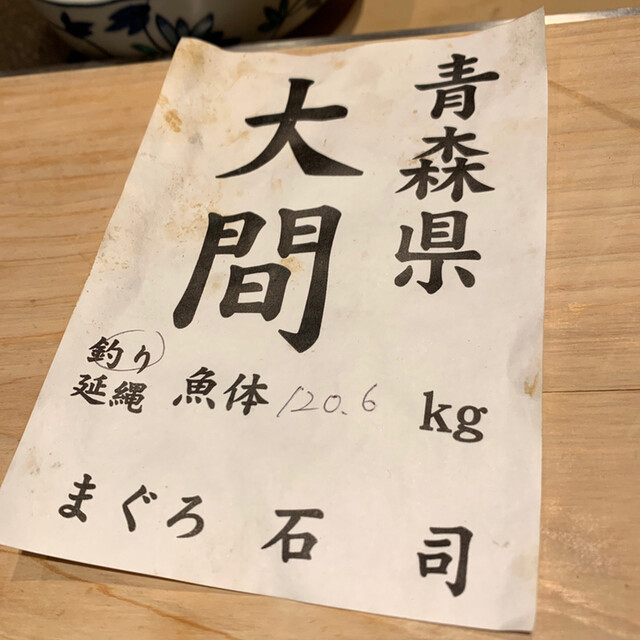 青森県
大間
釣り
延縄 魚体 120.6 kg
まぐろ 石司